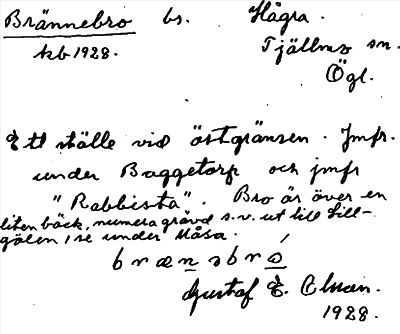 Brännebro bs. Hågra.
kb 1928. Tjällmo sn.
Ögl.
Ett ställe vid östgränsen. Jmfr.
under Baggetorp och jmfr
"Rabbista". Bro är över en
liten bäck, numera grävd s.v. ut till Lill-
gölen, se under Måsa.
brænəbró
Gustaf E. Olsson.
1928.